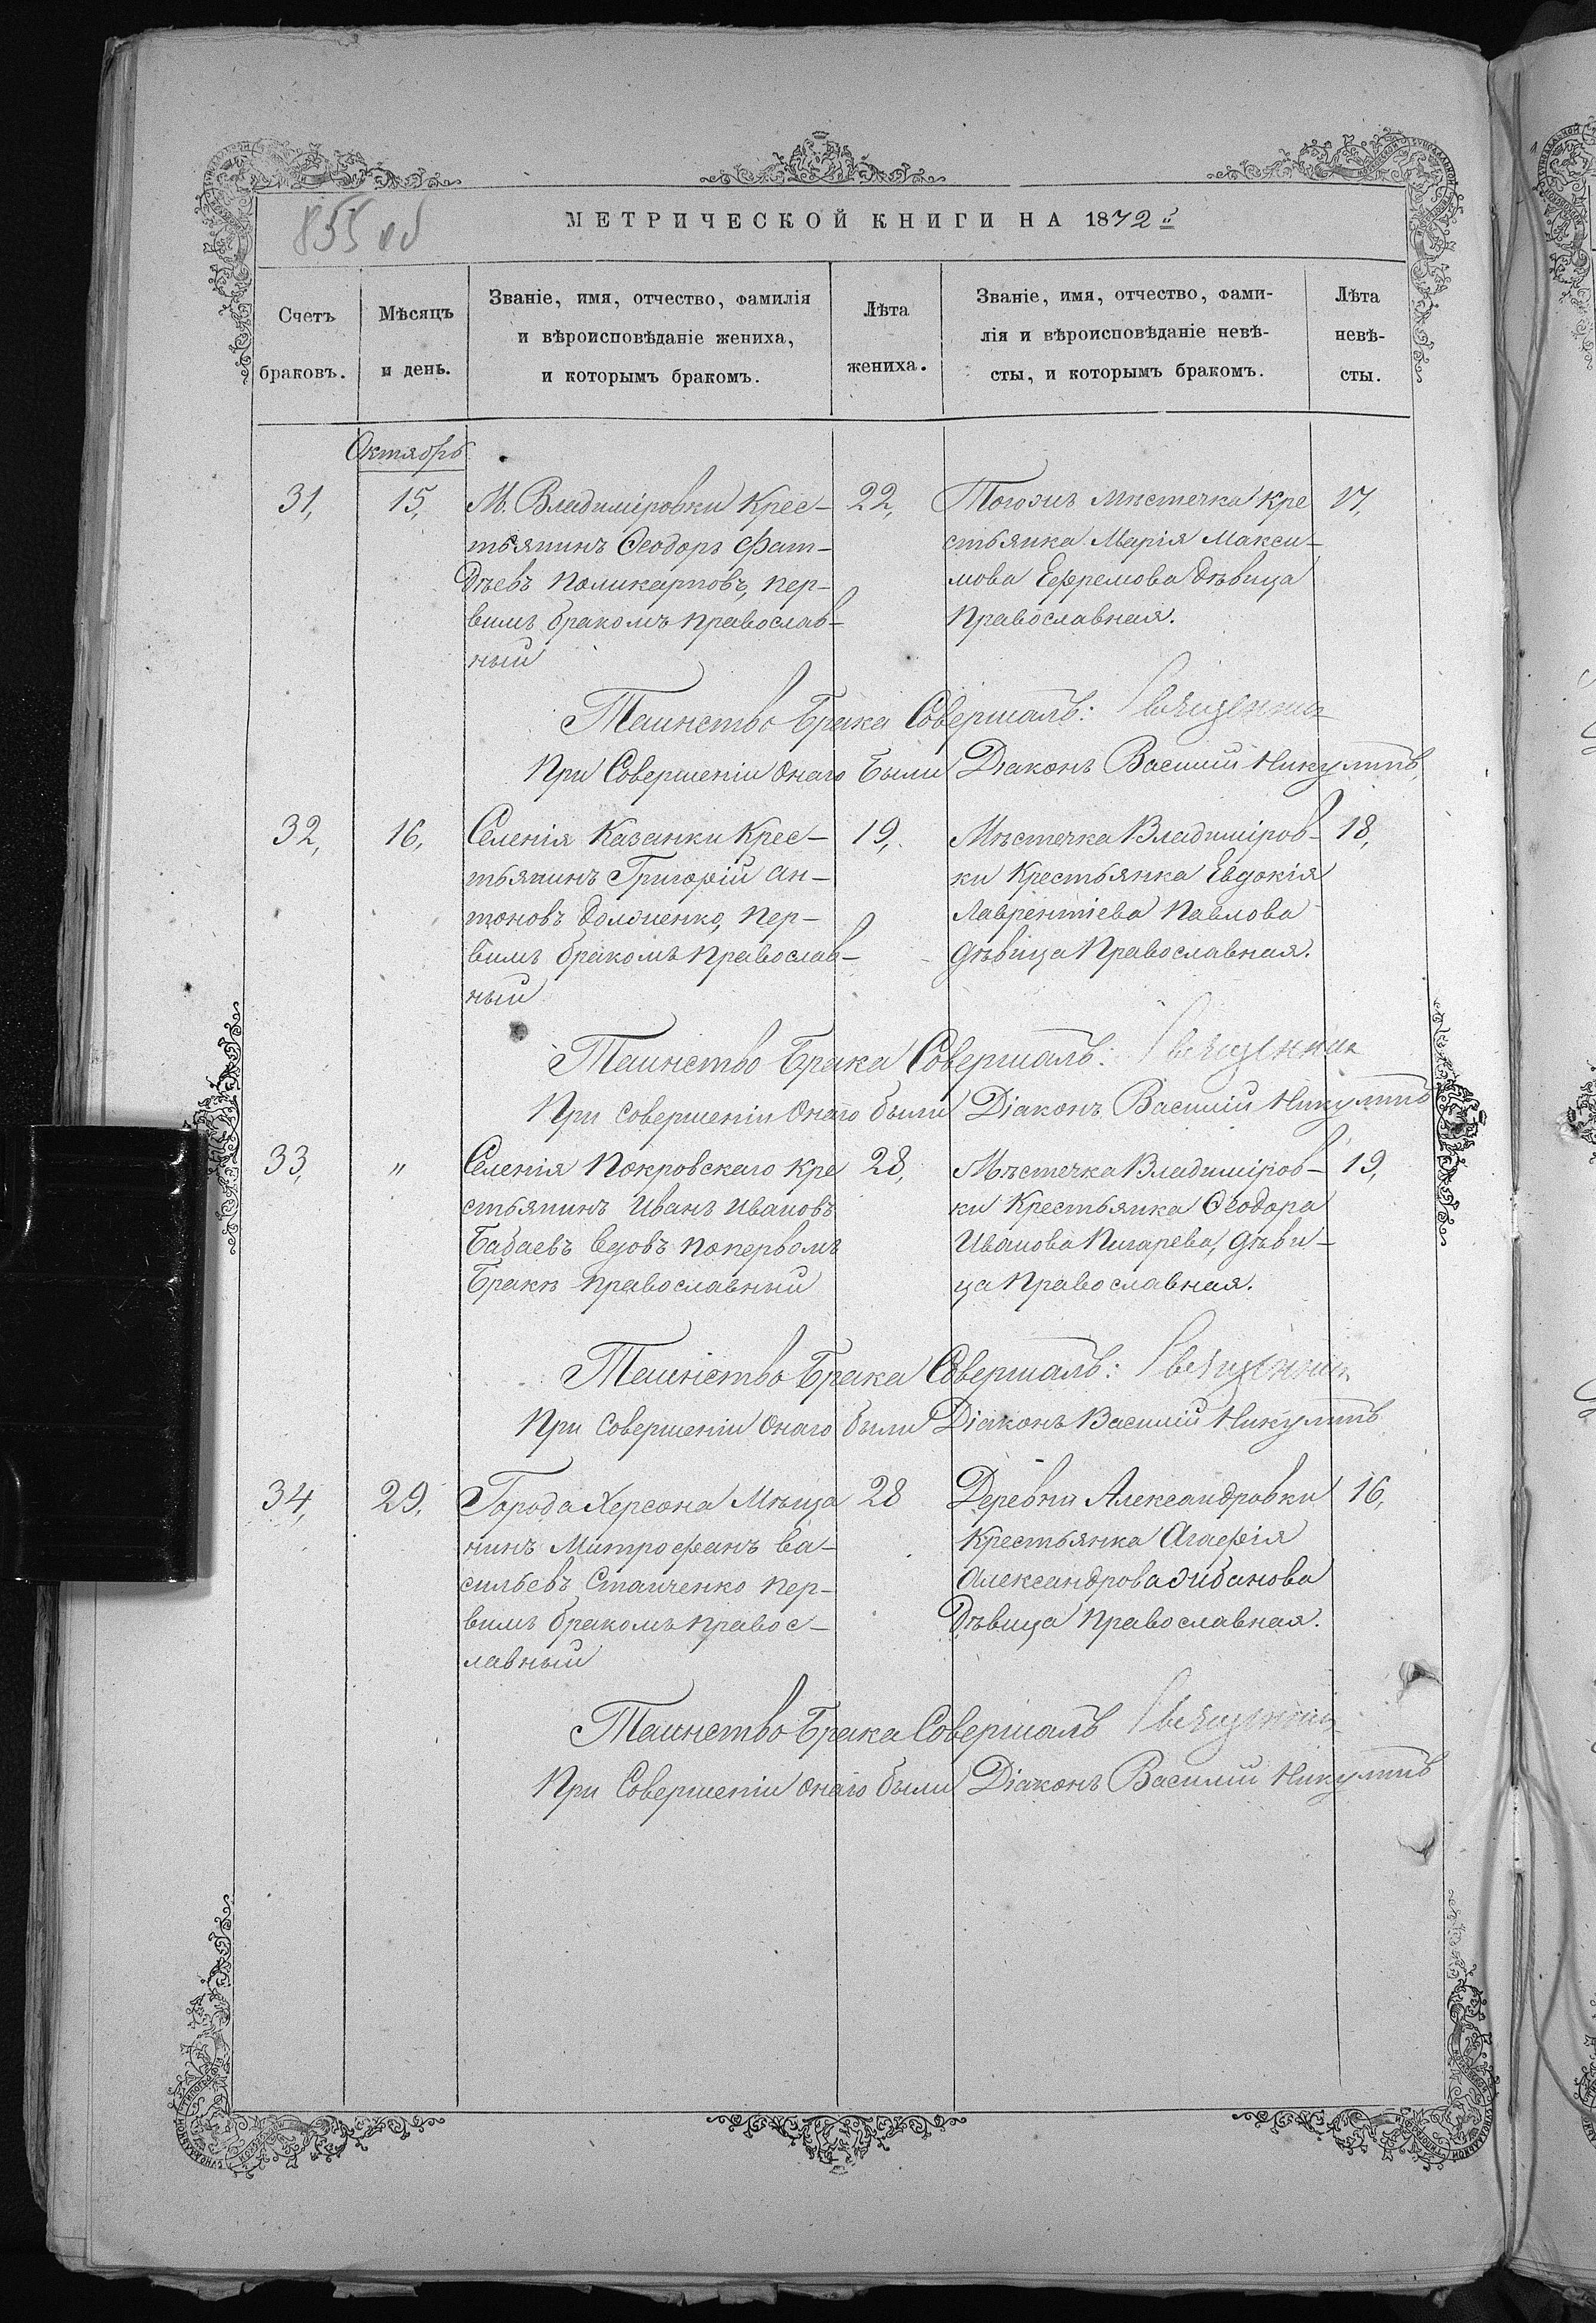 855 об
МЕТРИЧЕСКОЙ КНИГИ НА 1872й
Счетъ браковъ.
Мѣсяцъ и день.
Званіе, имя, отчество, фамилія
и вѣроисповѣданіе жениха,
и которымъ бракомъ.
Лѣта жениха.
Званіе, имя, отчество, фами-
лія и вѣроисповѣданіе невѣ-
сты, и которымъ бракомъ.
Лѣта невѣ-
сты.
Октябрь
31, 15,
М. Владиміровки Крес-
тьянинъ Ѳеодоръ Фат-
дѣевъ Поликарповъ, пер-
вимъ бракомъ православ-
ный
22,
Тогожъ мѣстечка Кре
стьянка Марія Макси-
мова Ефремова дѣвица
Православная.
17,
Таинство Брака Совершалъ: Священник
При Совершеніи Онаго Были Діаконъ Василій Никулинъ
32, 16,
Селенія Казанки Крес-
тьянинъ Григорій Ан-
тоновъ Долженко, пер-
вимъ бракомъ Православ-
ный
19,
Мѣстечка Владиміров-
ки Крестьянка Евдокія
Лаврентіева Павлова
дѣвица Православная.
18,
Таинство Брака Совершалъ: Священник
При Совершеніи Онаго были Діаконъ Василій Никулинъ
33, "
Селенія Покровскаго Кре
стьянинъ Иванъ Ивановъ
Бабаевъ вдовъ по первомъ
Бракѣ православный
28,
Мѣстечка Владиміров-
ки Крестьянка Ѳеодора
Иванова Писарева, дѣви-
ца Православная.
19,
Таинство Брака Совершалъ: Священник
При Совершеніи Онаго были Діаконъ Василій Никулинъ
34, 29,
Города Херсона Мѣща
нинъ Митрофанъ Ва-
сильевъ Станченко пер-
вимъ бракомъ Правос-
лавный
28
Деревни Александровки
Крестьянка Агафія
Александрова
Дѣвица Православная.
16,
Таинство Брака Совершалъ Священник
При Совершеніи Онаго были Діаконъ Василій Никулинъ